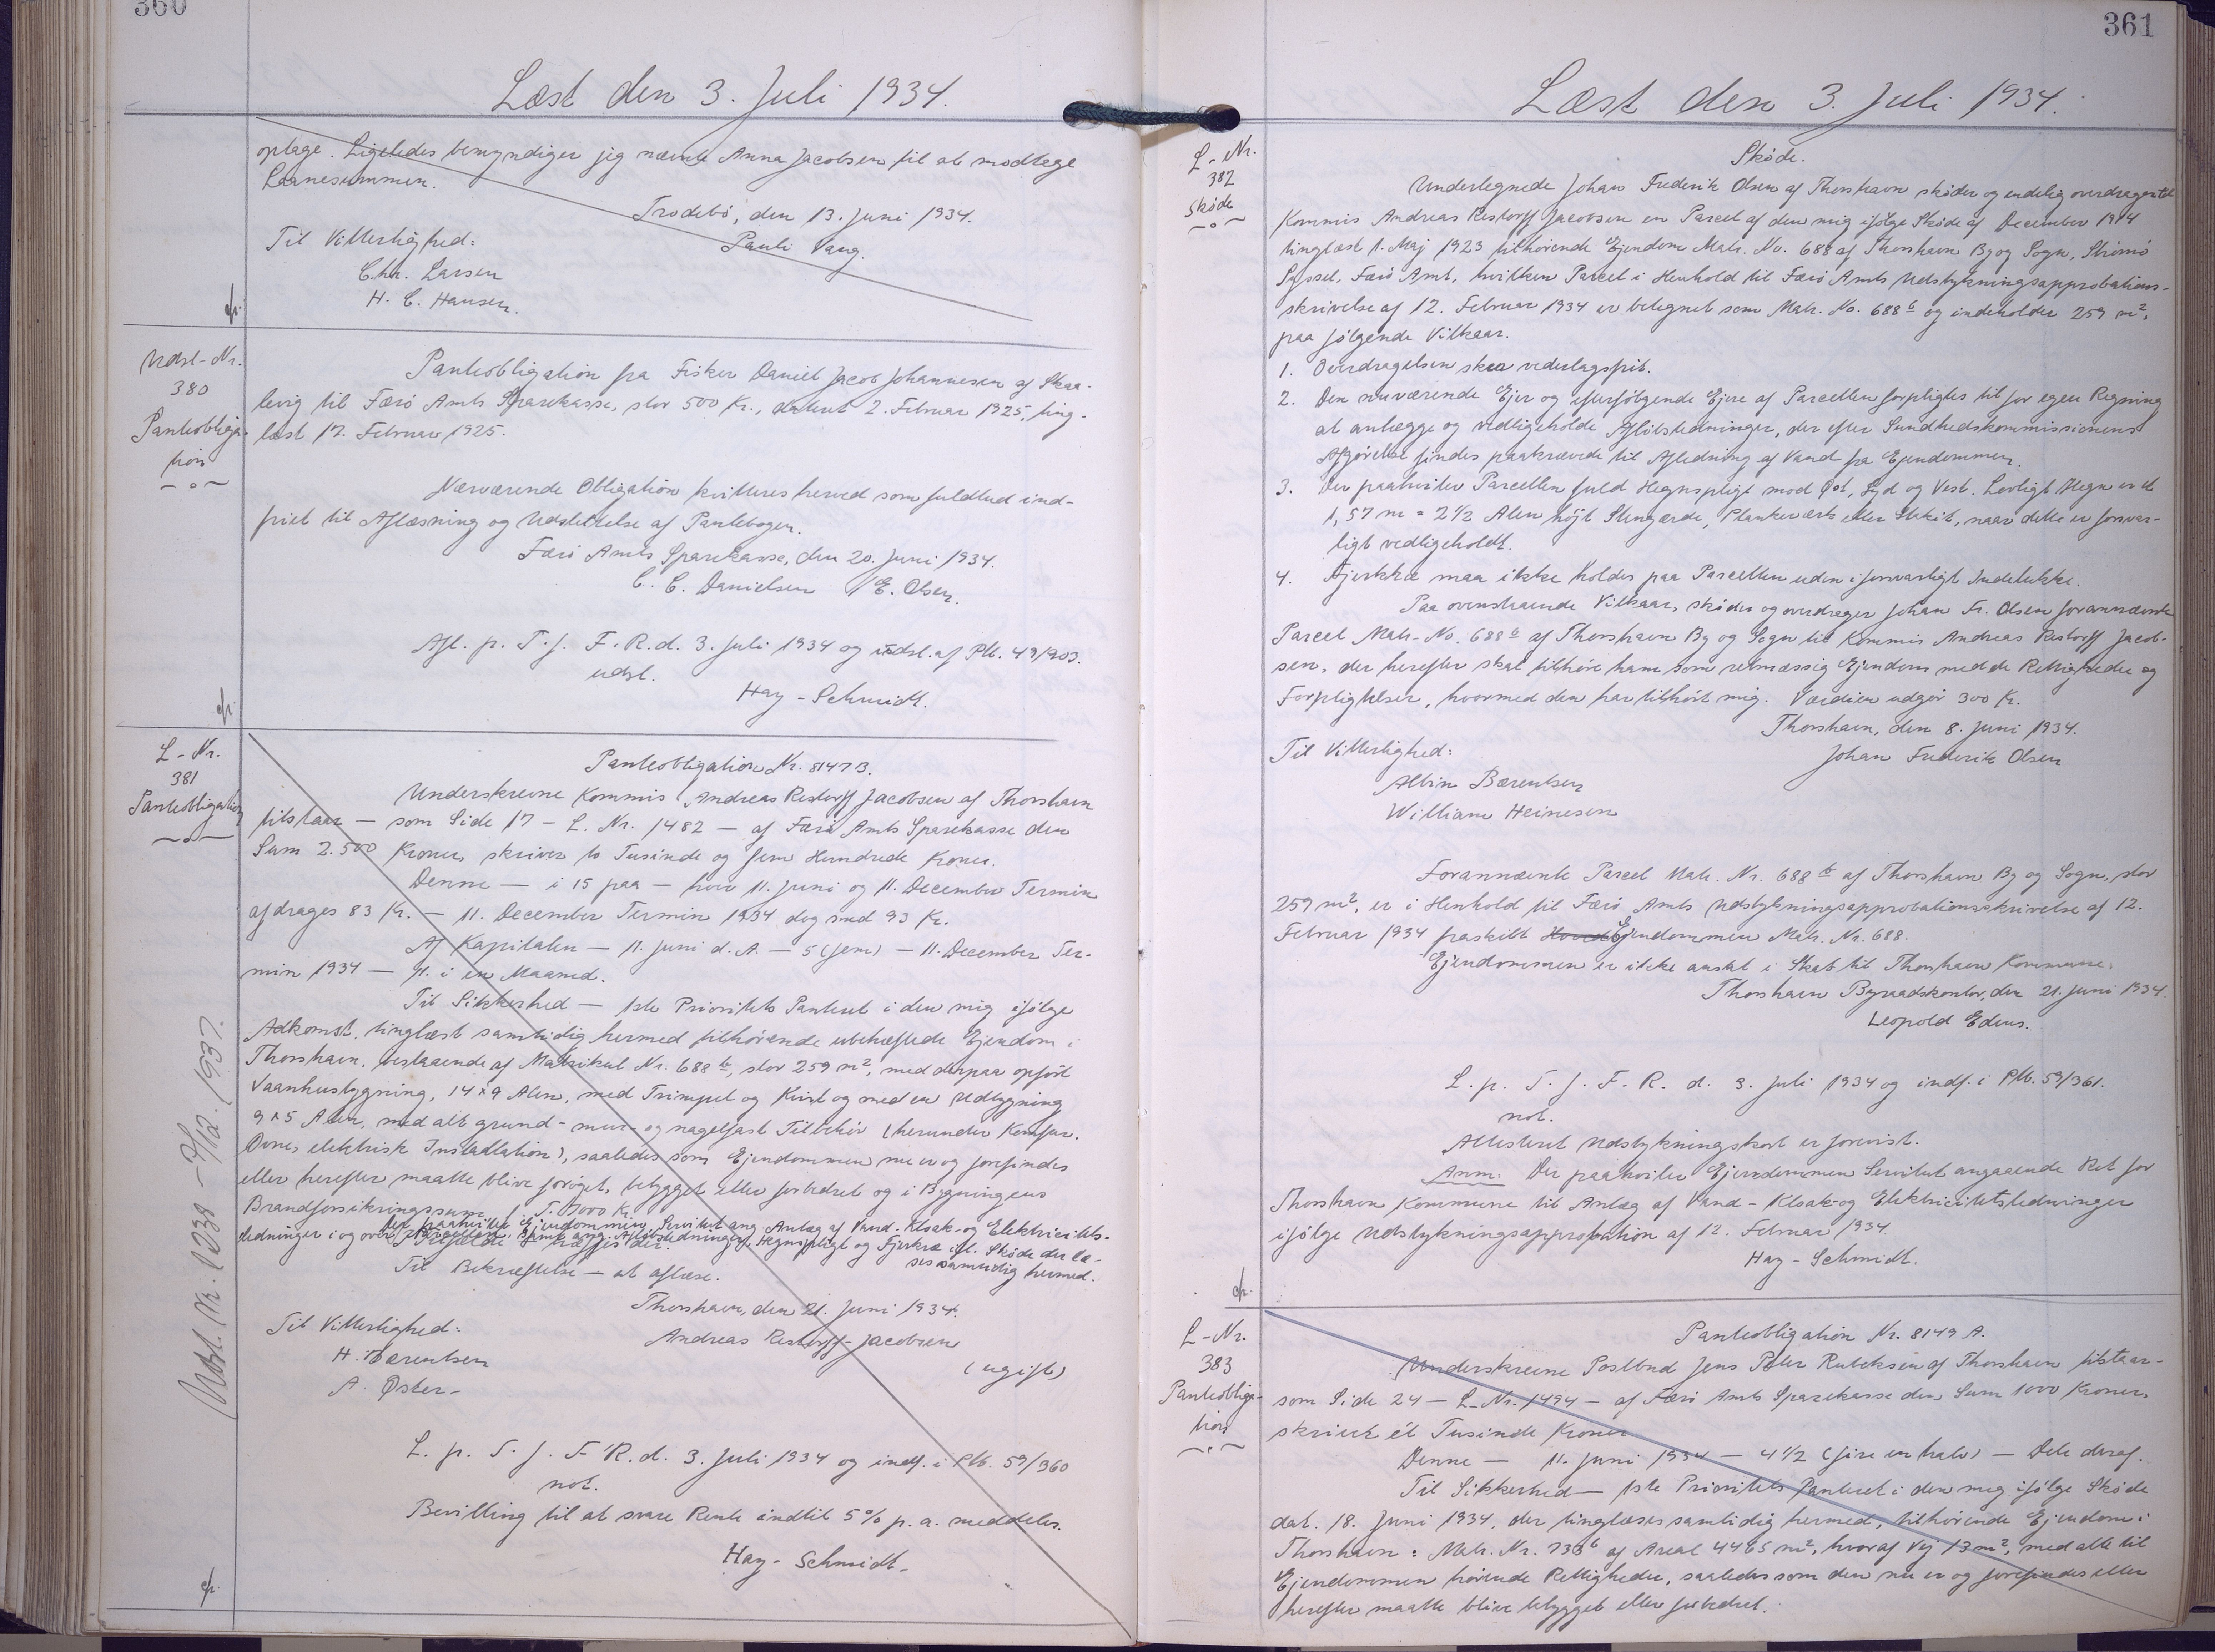 360
Læst den 3. Juli 1934.
optage. Ligeledes bemyndiger jeg nævnte Anna Jacobsen til at modtage
Laanesummen.
Trodebö, den 13. Juni 1934.
Til Vitterlighed:
Pauli Vang.
Chr. Larsen
H. C. Hansen.
Udsl-Nr.
380
Panteobliga-
tion
Panteobligation fra Fisker Daniel Jacob Johannesen af Skaa-
levig til Færö Amts Sparekasse, stor 500 Kr., dateret 2. Februar 1925, ting-
læst 17. Februar 1925.
Nærværende Obligation kvitteres herved som fuldtud ind-
friet til Aflæsning og Udslettelse af Pantebogen.
Færö Amts Sparekasse, den 20. Juni 1934.
C. C. Danielsen / E. Olsen.
Afl. p. T. f. F. R. d. 3. Juli 1934 og udsl. af Pb. 49/903.
udsl.
Hay-Schmidt.
L-Nr.
381
Panteobligation
Panteobligation Nr. 8147 B.
Underskrevne Kommis Andreas Restorff Jacobsen af Thorshavn
tilstaar — som Side 17 — L. Nr. 1482 — af Færö Amts Sparekasse den
Sum 2.500 Kroner, skriver to Tusinde og fem Hundrede Kroner.
Denne — i 15 paa — hver 11. Juni og 11. December Termin
afdrages 83 Kr. — 11. December Termin 1934 dog med 93 Kr.
Af Kapitalen — 11. Juni d. A. — 5 (fem) — 11. December Ter-
min 1934 — 11. i en Maaned.
Til Sikkerhed — 1ste Prioritets Panteret i den mig ifölge
Adkomst, tinglæst samtidig hermed tilhörende ubehæftede Ejendom i
Thorshavn, bestaaende af Matrikul Nr. 688 b, stor 259 m², med derpaa opfört
Vaanhusbygning, 14 x 9 Alen, med Trimpel og Kvist og med en Udbygning
9 x 5 Alen, med alt grund- mur- og nagelfast Tilbehör (herunder Komfur.
Ovne, elektrisk Installation), saaledes som Ejendommen nu er og forefindes
eller herefter maatte blive foröget, bebygget eller forbedret og i Bygningens
Brandforsikringssum
Der paahviler Ejendommen Servitut ang Anlæg af Vand- Kloak- og Elektricitets-
ledninger i og over Arealet, samt ang. Aflöbsledninger, Hegnspligt og Fjerkræ ifl. Sköde der læ-
ses samtidig hermed.
Til Bekræftelse — at aflæse.
Thorshavn, den 21. Juni 1934.
Til Vitterlighed:
Andreas Restorff-Jacobsen
H. Bærentsen
(ugift)
A. Øster-
L. p. T. f. F. R. d. 3. Juli 1934 og indf. i Pb. 59/360
not.
Bevilling til at svare Rente indtil 5% p. a. meddeles.
Hay-Schmidt-
Udsl. Nr. 1038 - 7/12. 1937.
361
Læst den 3. Juli 1934.
L-Nr.
382
Sköde
Sköde.
Undertegnede Johan Frederik Olsen af Thorshavn sköder og endelig overdrager til
Kommis Andreas Restorff Jacobsen en Parcel af den mig ifölge Sköde af December 1914
tinglæst 1. Maj 1923 tilhörende Ejendom Matr. No. 688 af Thorshavn By og Sogn, Strömö
Syssel, Færö Amt, hvilken Parcel i Henhold til Færö Amts Udstykningsapprobations-
skrivelse af 12. Februar 1934 er betegnet som Matr. No. 688 b og indeholder 259 m²,
paa fölgende Vilkaar.
1. Overdragelsen sker vederlagsfrit.
2. Den nuværende Ejer og efterfölgende Ejere af Parcellen forpligtes til for egen Regning
at anlægge og vedligeholde Aflöbsledninger, der efter Sundhedskommissionens
Afgörelse findes paakrævede til Afledning af Vand fra Ejendommen.
3. Der paahviler Parcellen fuld Hegnspligt mod Øst, Syd og Vest. Lovligt Hegn er et
1,57 m = 2½ Alen höjt Stengærde, Plankeværk eller Stakit, naar dette er forsvar-
ligt vedligeholdt.
4. Fjerkræ maa ikke holdes paa Parcellen uden i forsvarligt Indelukke.
Paa ovenstaaende Vilkaar, sköder og overdrager Johan Fr. Olsen forannævnte
Parcel Matr-No. 688 b af Thorshavn By og Sogn til Kommis Andreas Restorff Jacob-
sen, der herefter skal tilhöre ham som retmæssig Ejendom med de Rettigheder og
Forpligtelser, hvormed den har tilhört mig. Værdien udgör 300 Kr.
Thorshavn, den 8. Juni 1934.
Til Vitterlighed:
Johan Frederik Olsen
Albin Bærentsen
William Heinesen
Forannævnte Parcel Matr. Nr. 688 b af Thorshavn By og Sogn, stor
259 m², er i Henhold til Færö Amts Udstykningsapprobationsskrivelse af 12.
Februar 1934 fraskilt Ejendommen Matr. Nr. 688.
Ejendommen er ikke ansat i Skat til Thorshavn Kommune.
Thorshavn Byraadskontor, den 21. Juni 1934.
Leopold Edens.
L. p. T. f. F. R. d. 3. Juli 1934 og indf. i Pb. 59/361.
not.
Attesteret Udstykningskort er forevist.
Anm: Der paahviler Ejendommen Servitut angaaende Ret for
Thorshavn Kommune til Anlæg af Vand- Kloak- og Elektricitetsledninger
ifölge Udstykningsapprobation af 12. Februar 1934.
Hay-Schmidt.
L-Nr.
383
Panteobliga-
tion
Panteobligation Nr. 8149 A.
Underskrevne Postbud Jens Peter Rubeksen af Thorshavn tilstaar-
som Side 24 — L-Nr. 1494 — af Færö Amts Sparekasse den Sum 1000 Kroner,
skriver ét Tusinde Kroner
Denne — 11. Juni 1934 — 4 1/2 (fire en halv) — Dele deraf.
Til Sikkerhed — 1ste Prioritets Panteret i den mig ifölge Sköde
dat. 18. Juni 1934, der tinglæses samtidig hermed, tilhörende Ejendom i
Thorshavn: Matr. Nr. 733 b af Areal 4465 m², hvoraf Vej 13 m², med alle til
Ejendommen hörende Rettigheder, saaledes som den nu er og forefindes eller
herefter maatte blive bebygget eller forbedret.